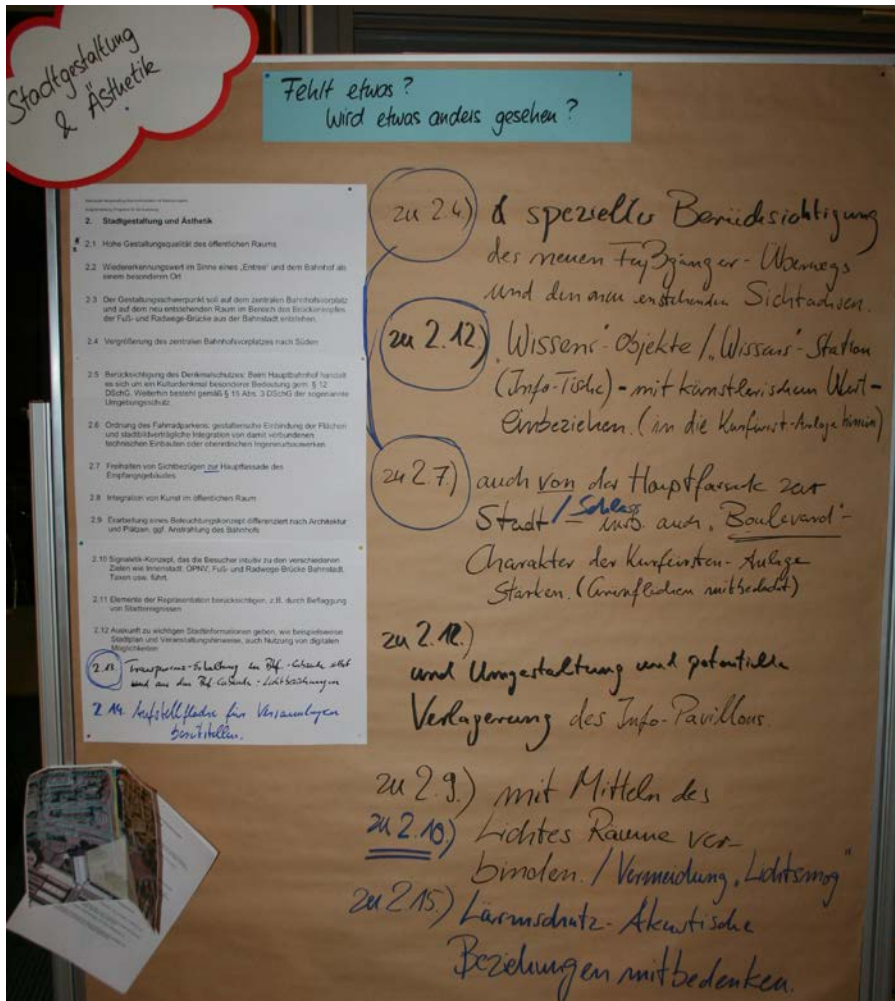 Stadtgestaltung
& Ästhetik
Fehlt etwas?
Wird etwas anders gesehen?
2. Stadtgestaltung und Ästhetik
2.1 Hohe Gestaltungsqualität des öffentlichen Raums
2.2 Wiedererkennungswert im Sinne eines „Entree“ und dem Bahnhof als
einem besonderen Ort
2.3 Der Gestaltungsschwerpunkt soll auf dem zentralen Bahnhofsvorplatz
und auf dem neu entstehenden Raum im Bereich des Brückenkopfes
der Fuß- und Radwege-Brücke aus der Bahnstadt entstehen.
2.4 Vergrößerung des zentralen Bahnhofsvorplatzes nach Süden
2.5 Berücksichtigung des Denkmalschutzes: Beim Hauptbahnhof handelt
es sich um ein Kulturdenkmal besonderer Bedeutung gem. § 12
DSchG. Weiterhin besteht gemäß § 15 Abs. 3 DSchG der sogenannte
Umgebungsschutz.
2.6 Ordnung des Fahrradparkens: gestalterische Einbindung der Flächen
und stadtbildverträgliche Integration von damit verbundenen
technischen Einbauten oder oberirdischen Ingenieurbauwerken
2.7 Freihalten von Sichtbezügen zur Hauptfassade des
Empfangsgebäudes
2.8 Integration von Kunst im öffentlichen Raum
2.9 Erarbeitung eines Beleuchtungskonzept differenziert nach Architektur
und Plätzen, ggf. Anstrahlung des Bahnhofs
2.10 Signaletik-Konzept, das die Besucher intuitiv zu den verschiedenen
Zielen wie Innenstadt, ÖPNV, Fuß- und Radwege-Brücke Bahnstadt,
Taxen usw. führt.
2.11 Elemente der Repräsentation berücksichtigen, z.B. durch Beflaggung
von Stadtereignissen
2.12 Auskunft zu wichtigen Stadtinformationen geben, wie beispielsweise
Stadtplan und Veranstaltungshinweise, auch Nutzung von digitalen
Möglichkeiten
2.13 Transparenz-Erhaltung im Bhf.-Gebäude selbst
und aus dem Bhf-Gebäude - Lichtbeziehungen
2.14. Aufstellfläche für Versammlungen
bereitstellen.
zu 2.4.) & spezieller Berücksichtigung
des neuen Fußgänger-Überwegs
und den neu enstehenden Sichtachsen.
zu 2.12.) „Wissens“-Objekte / „Wissens“-Station
(Info-Tische) - mit künstlerischem Wert -
Einbeziehen. (in die Kurfürst.-Anlage hinein)
zu 2.7.) auch von der Hauptfassade zur
Stadt / Schloss - insb. auch „Boulevard“-
Charakter der Kurfürsten-Anlage
Stärken. (Grünflächen mitbedacht)
zu 2.12.)
und Umgestaltung und potentielle
Verlagerung des Info-Pavillons.
zu 2.9.) mit Mitteln des
zu 2.10.) Lichtes Räume ver-
binden. / Vermeidung „Lichtsmog“
zu 2.15.) Lärmschutz- Akustische
Beziehungen mitbedenken.